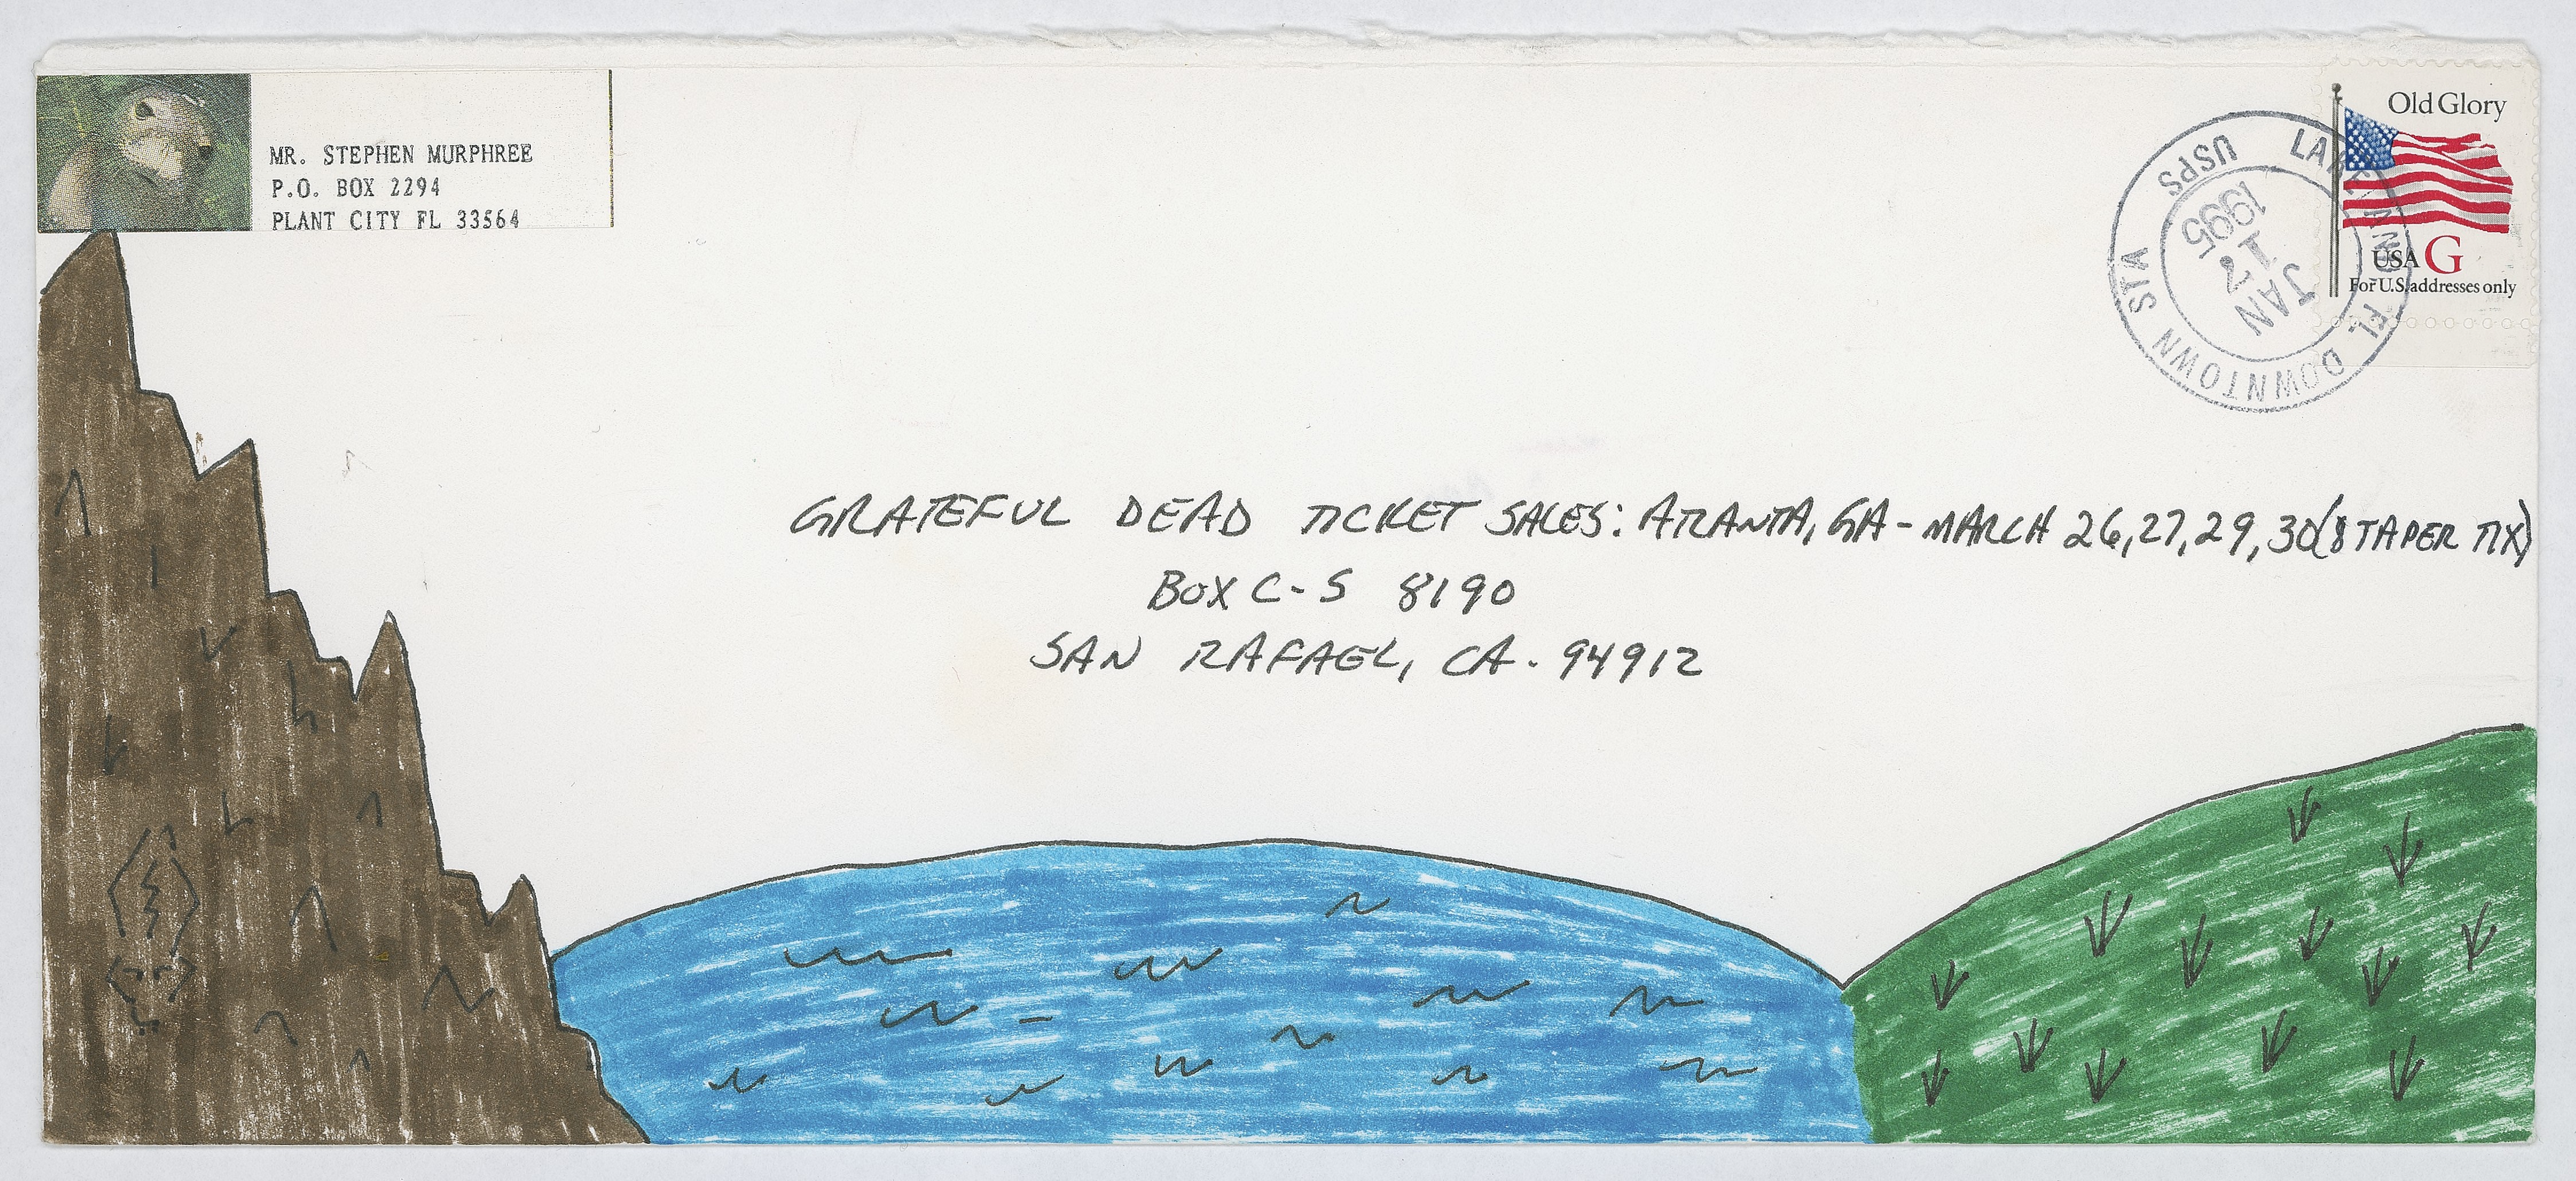 MR. STEPHEN MURPHREE
P.O. BOX 2294
PLANT CITY FL 33564
Old Glory
USA G
For U.S. addresses only
LAKELAND FL DOWNTOWN STA
USPS
JAN
17
1995
GRATEFUL DEAD TICKET SALES: ATLANTA, GA - MARCH 26, 27, 29, 30 (8 TAPER TIX)
BOX C-S 8190
SAN RAFAEL, CA. 94912